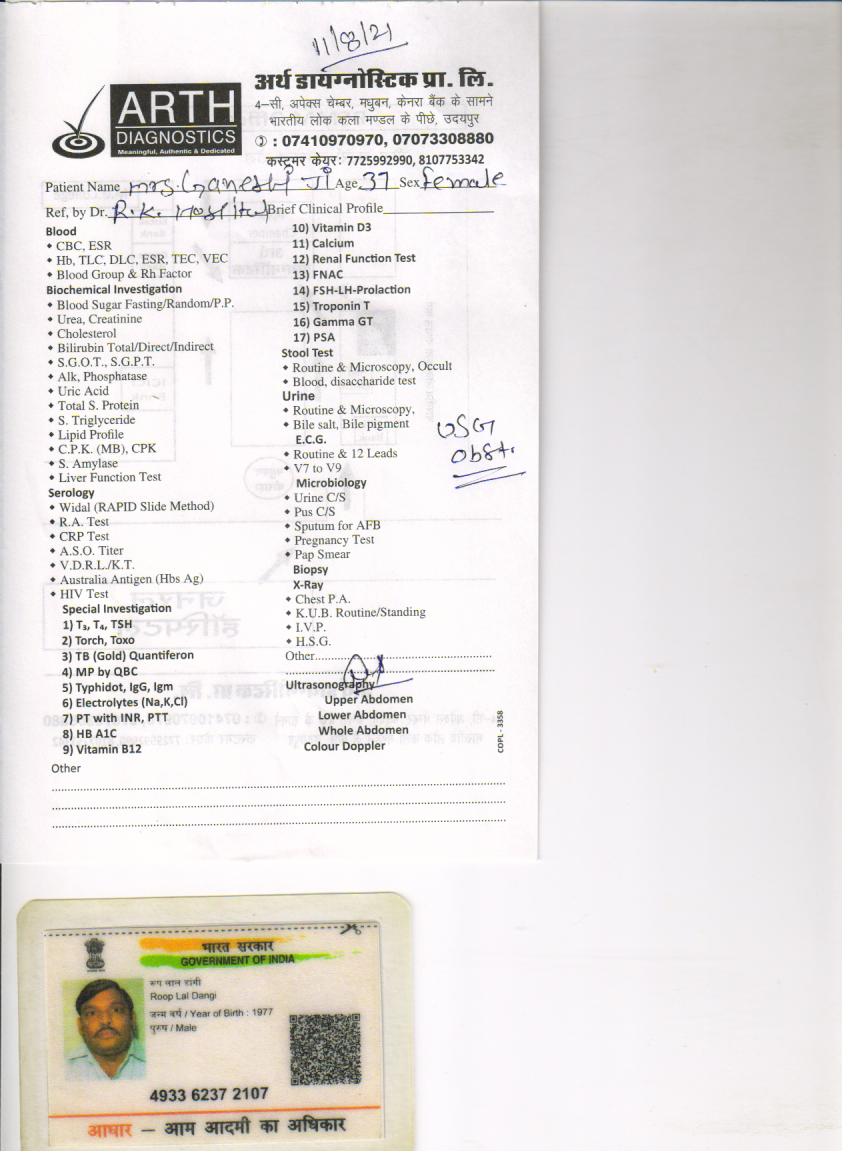 11/8/21
ARTH
DIAGNOSTICS
Meaningful, Authentic & Dedicated
अर्थ डायग्नोस्टिक प्रा. लि.
4–सी, अपेक्स चेम्बर, मधुबन, केनरा बैंक के सामने
भारतीय लोक कला मण्डल के पीछे, उदयपुर
✆ : 07410970970, 07073308880
कस्टमर केयर: 7725992990, 8107753342
Patient Name Mrs. Ganeshi Ji Age 37 Sex female
Ref, by Dr. R.K. Hospital Brief Clinical Profile
Blood
• CBC, ESR
• Hb, TLC, DLC, ESR, TEC, VEC
• Blood Group & Rh Factor
Biochemical Investigation
• Blood Sugar Fasting/Random/P.P.
• Urea, Creatinine
• Cholesterol
• Bilirubin Total/Direct/Indirect
• S.G.O.T., S.G.P.T.
• Alk, Phosphatase
• Uric Acid
• Total S. Protein
• S. Triglyceride
• Lipid Profile
• C.P.K. (MB), CPK
• S. Amylase
• Liver Function Test
Serology
• Widal (RAPID Slide Method)
• R.A. Test
• CRP Test
• A.S.O. Titer
• V.D.R.L./K.T.
• Australia Antigen (Hbs Ag)
• HIV Test
Special Investigation
1) T₃, T₄, TSH
2) Torch, Toxo
3) TB (Gold) Quantiferon
4) MP by QBC
5) Typhidot, IgG, Igm
6) Electrolytes (Na,K,Cl)
7) PT with INR, PTT
8) HB A1C
9) Vitamin B12
10) Vitamin D3
11) Calcium
12) Renal Function Test
13) FNAC
14) FSH-LH-Prolaction
15) Troponin T
16) Gamma GT
17) PSA
Stool Test
• Routine & Microscopy, Occult
• Blood, disaccharide test
Urine
• Routine & Microscopy,
• Bile salt, Bile pigment
E.C.G.
• Routine & 12 Leads
• V7 to V9
Microbiology
• Urine C/S
• Pus C/S
• Sputum for AFB
• Pregnancy Test
• Pap Smear
Biopsy
X-Ray
• Chest P.A.
• K.U.B. Routine/Standing
• I.V.P.
• H.S.G.
Other
Ultrasonography
Upper Abdomen
Lower Abdomen
Whole Abdomen
Colour Doppler
USG
Obst.
COPL - 3358
Other
भारत सरकार
GOVERNMENT OF INDIA
रूप लाल डांगी
Roop Lal Dangi
जन्म वर्ष / Year of Birth : 1977
पुरुष / Male
4933 6237 2107
आधार – आम आदमी का अधिकार